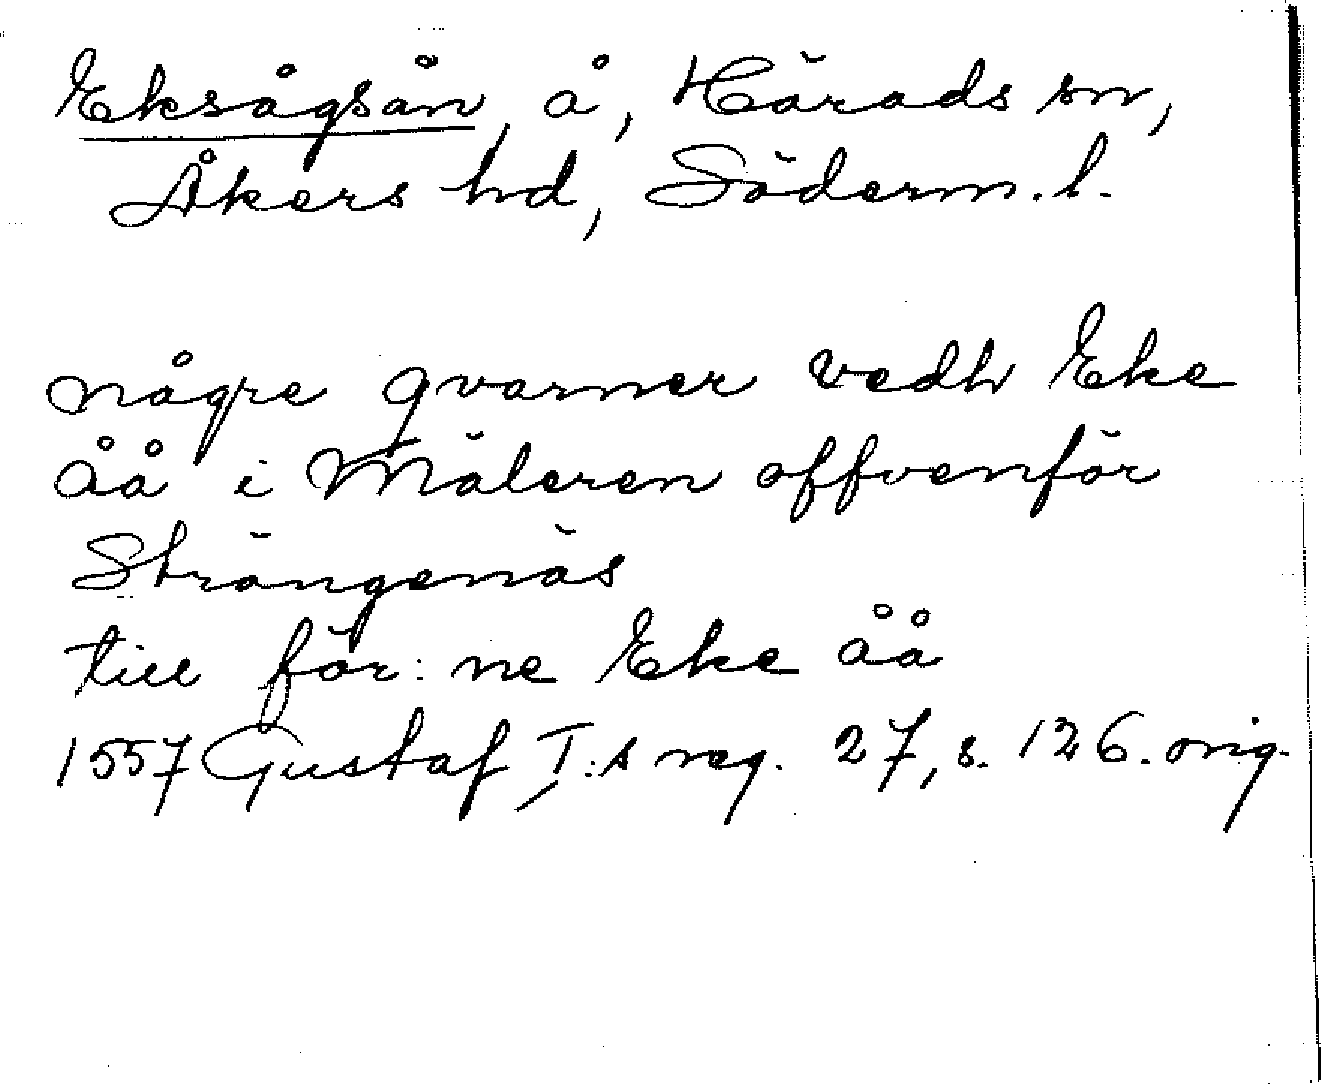 Eksågsån, å, Härads sn,
Åkers hd, Söderm. l.
någre qvarner vedh Eke
åå i Mäleren offvenför
Strängenäs
till för: ne Eke åå
1557 Gustaf I:s reg. 27, s. 126. orig.